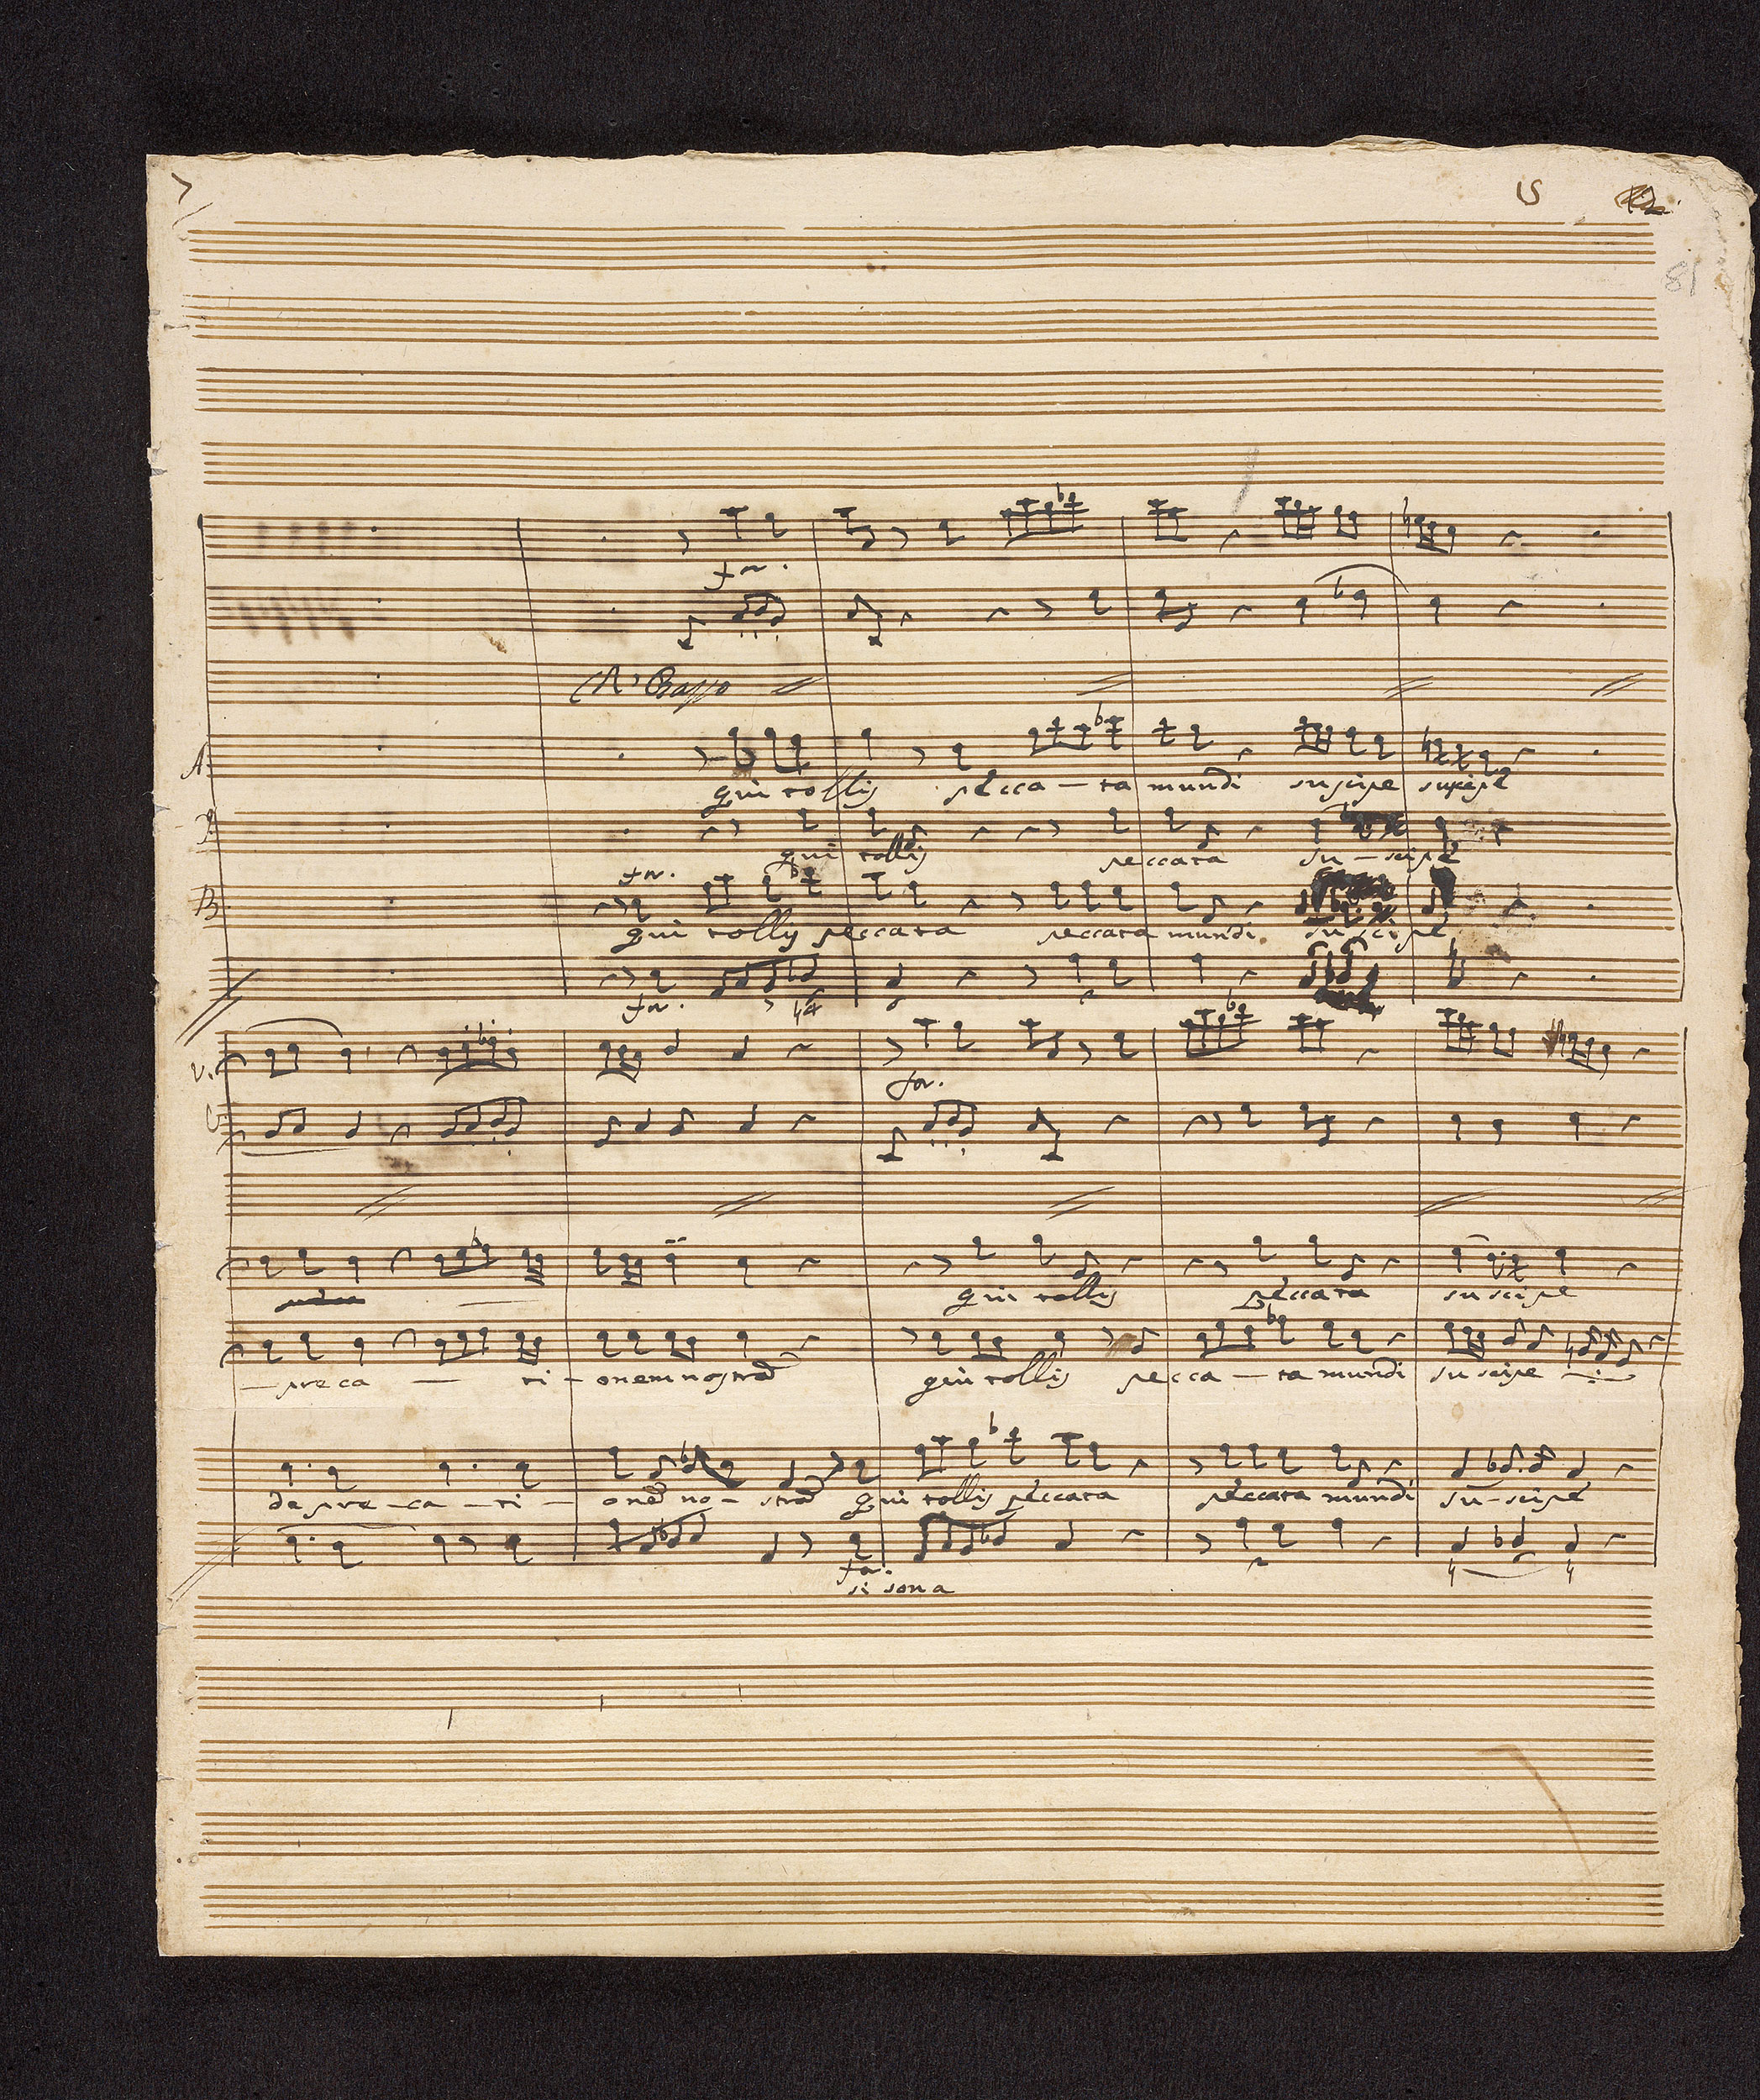 15
81
for.
Al Basso
A
qui tollis pecca - ta mundi suscipe suscipe
qui tollis peccata su - scipe
for.
B
qui tollis peccata peccata mundi suscipe
for.
V.
for.
qui tollis peccata suscipe
- preca - ti - onem nostrã qui tollis pecca - ta mundi suscipe
de pre - ca - ti - onẽ no - strã qui tollis peccata peccata mundi su - scipe
fo.
si sona